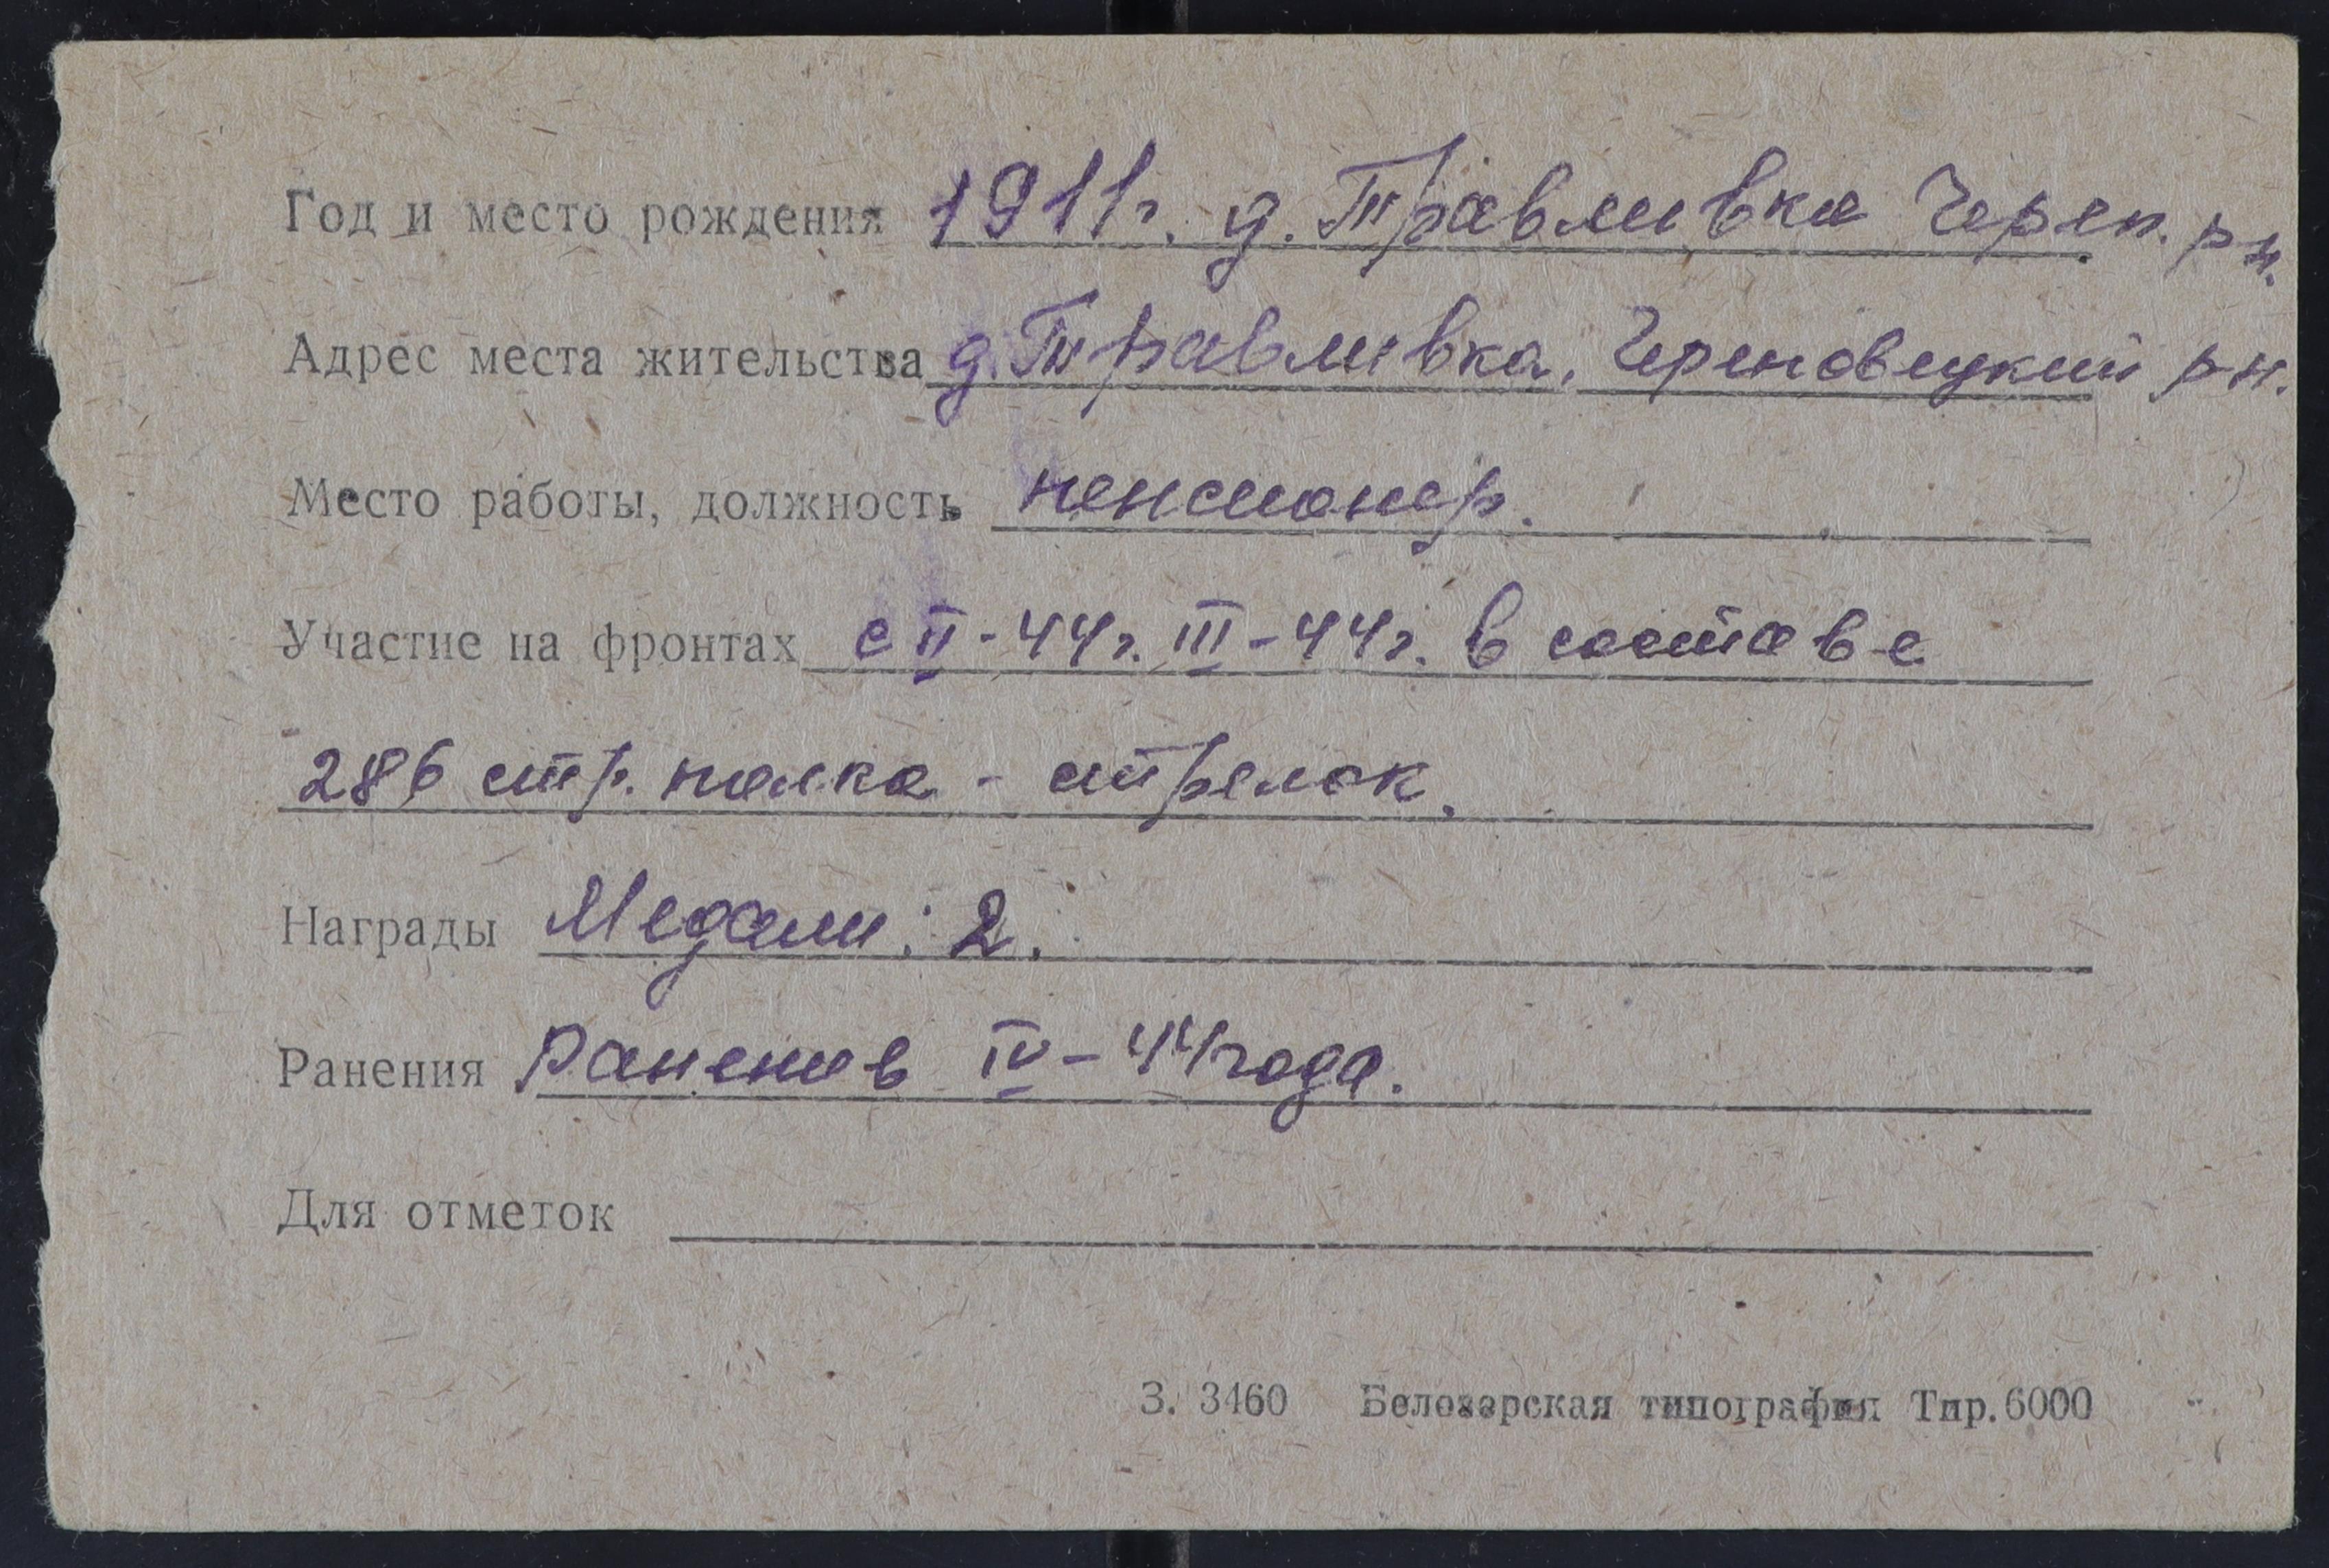 Год и место рождения 1911г. д. Травливка Череп. рн.
Адрес места жительства д. Травливка, Череповецкий рн.
Место работы, должность пенсионер.
Участие на фронтах с II-44г. III-44г. в составе
286 стр. полка - стрелок.
Награды Медали: 2.
Ранения Ранение в IV-44 года.
Для отметок
З. 3460 Белозерская типография Тир. 6000